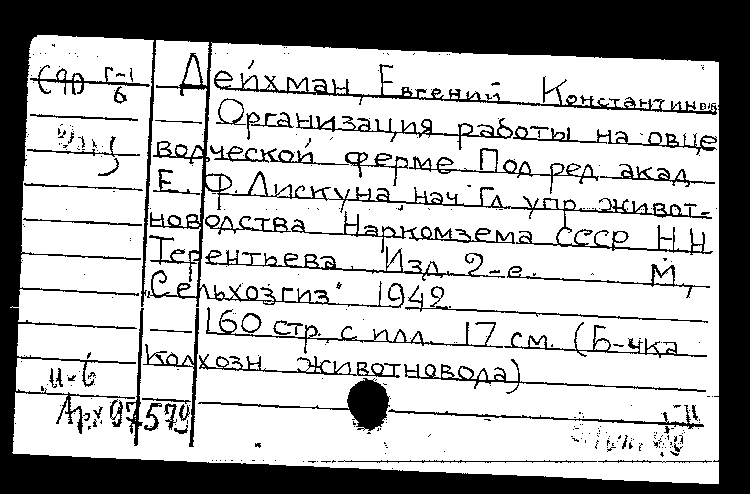 С90 Г-1/6 Дейхман, Евгений Константинов
Организация работы на овце
водческой ферме Под ред. акад
Е. Ф. Лискуна, нач Гл упр. живот-
новодства Наркомзема СССР Н.Н
Терентьева. Изд. 2-е. М,
"Сельхозгиз" 1942
160 стр., с илл. 17 см. (Б-чка
колхозн. животновода)
И-6
Арх 97579